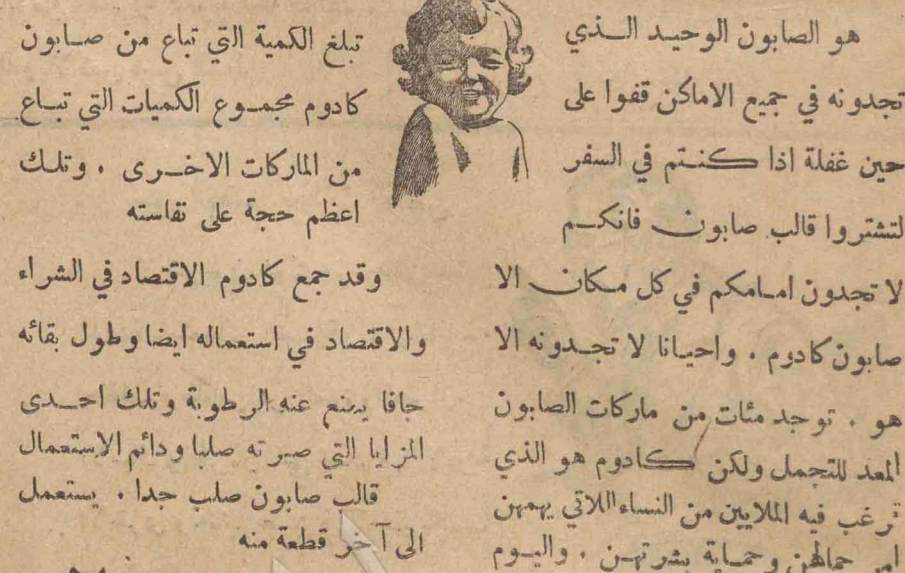 هو الصابون الوحيد الذي
تجدونه في جميع الاماكن قفوا على
حين غفلة اذا كنتم في السفر
لتشتروا قالب صابون فانكم
لا تجدون امامكم في كل مكان الا
صابون كادوم . واحيانا لا تجدونه الا
هو . توجد مئات من ماركات الصابون
المعد للتجمل ولكن كادوم هو الذي
ترغب فيه الملايين من النساء اللاتي يهمهن
امر جمالهن وحماية بشرتهن . واليوم
تبلغ الكمية التي تباع من صابون
كادوم مجموع الكميات التي تباع
من الماركات الاخرى . وتلك
اعظم حجة على نفاسته
وقد جمع كادوم الاقتصاد في الشراء
والاقتصاد في استعماله ايضا وطول بقائه
جافا يمنع عنه الرطوبة وتلك احدى
المزايا التي صيرته صلبا ودائم الاستعمال
قالب صابون صلب جدا . يستعمل
الى آخر قطعة منه